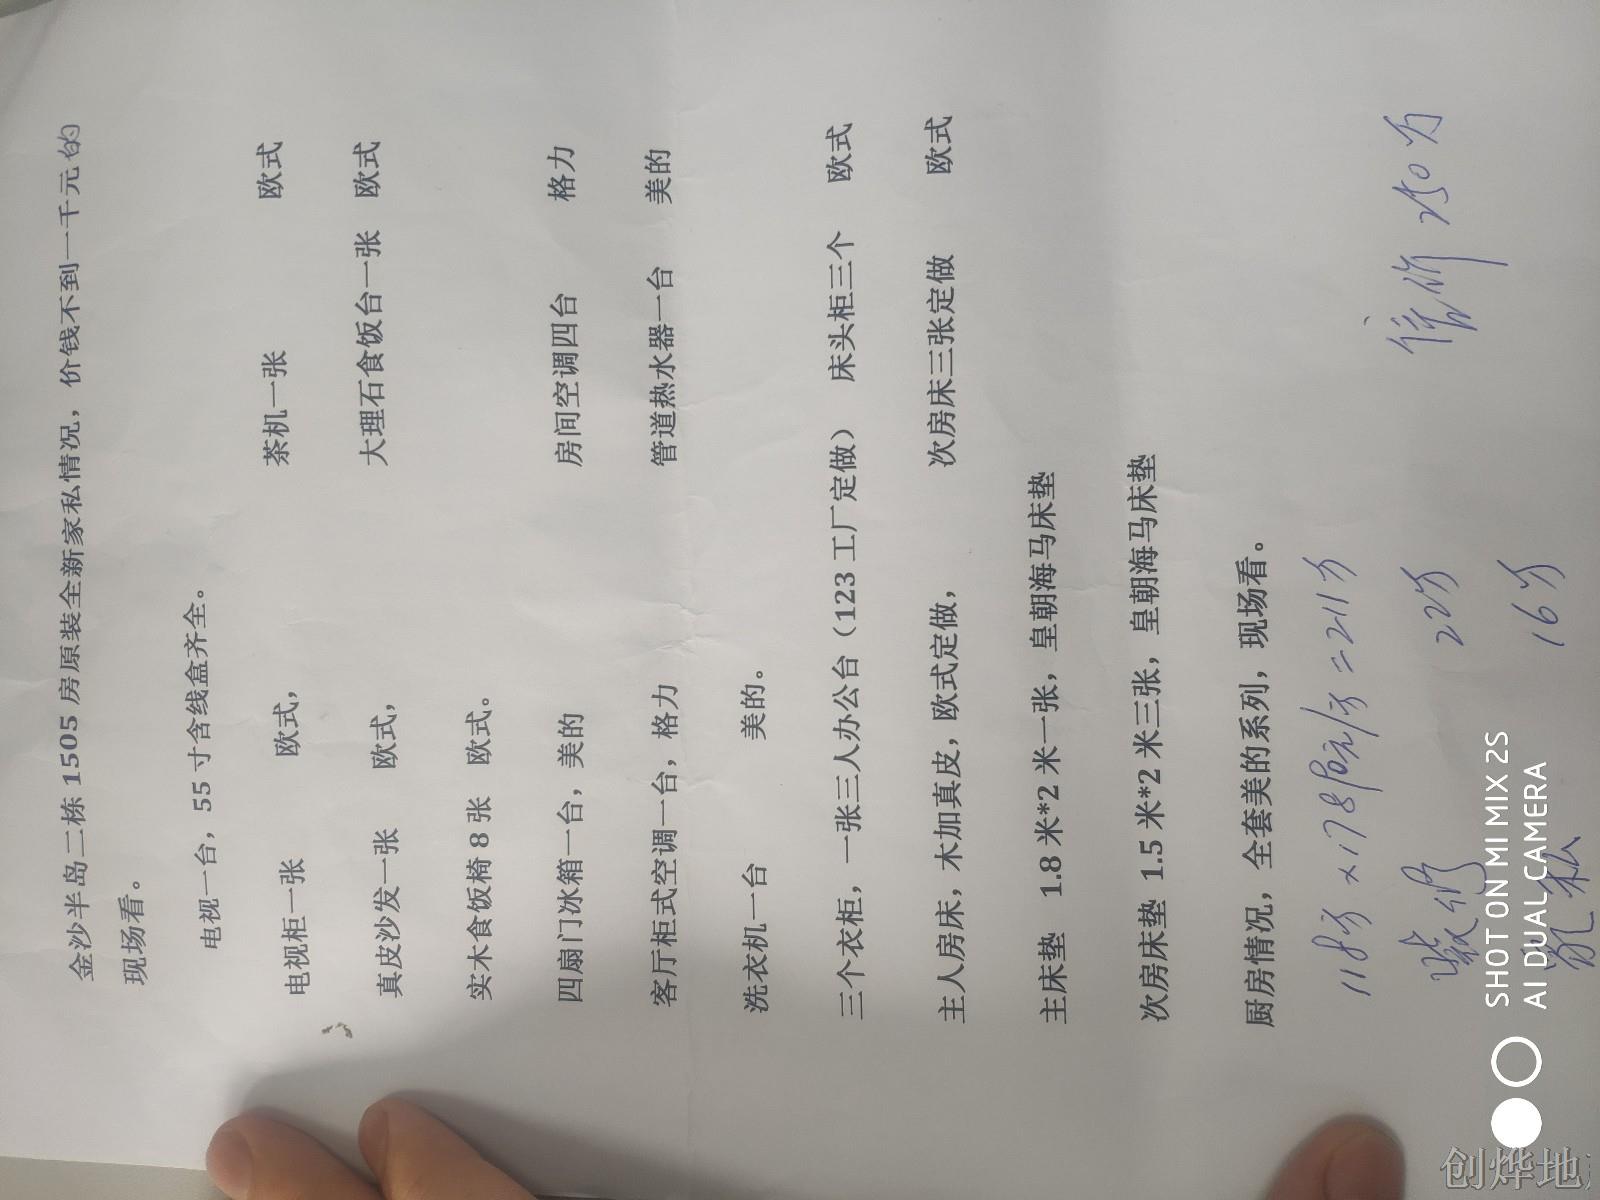 金沙半岛二栋 1505 房原装全新家私情况，价钱不到一千元的
现场看。
电视一台，55 寸含线盒齐全。
电视柜一张 欧式， 茶机一张 欧式
真皮沙发一张 欧式， 大理石食饭台一张 欧式
实木食饭椅 8 张 欧式。
四扇门冰箱一台，美的 房间空调四台 格力
客厅柜式空调一台，格力 管道热水器一台 美的
洗衣机一台 美的。
三个衣柜，一张三人办公台（123 工厂定做） 床头柜三个 欧式
主人房床，木加真皮，欧式定做， 次房床三张定做 欧式
主床垫 1.8 米*2 米一张，皇朝海马床垫
次房床垫 1.5 米*2 米三张，皇朝海马床垫
厨房情况，全套美的系列，现场看。
=211万
22万 250万
家私 16万
SHOT ON MI MIX 2S
AI DUAL CAMERA
创烨地